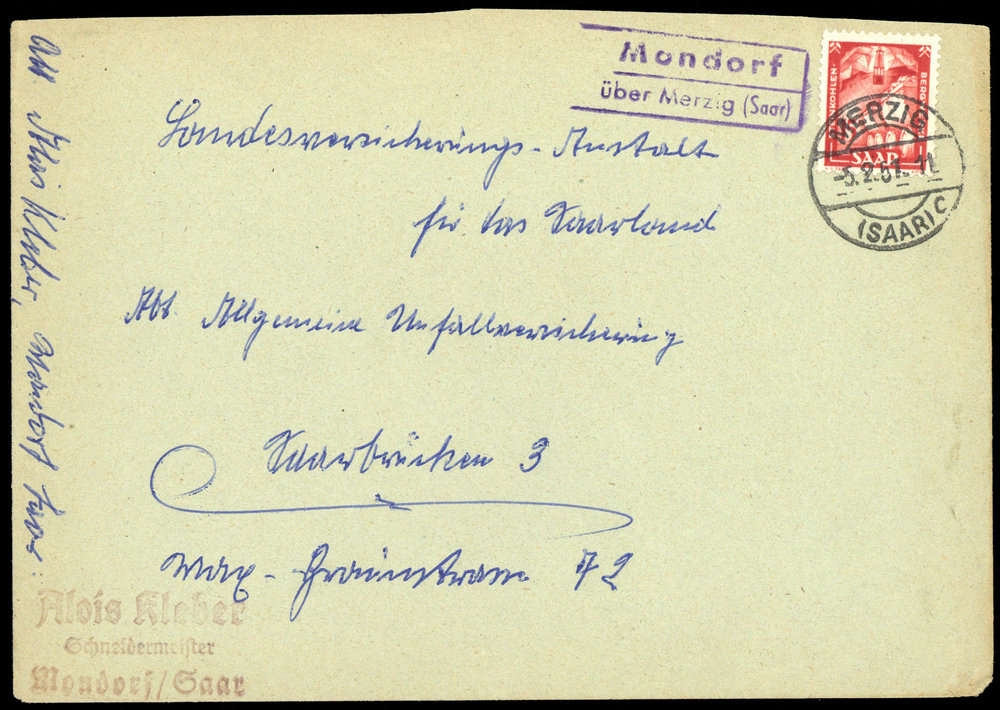 Mondorf
über Merzig (Saar)
NKOHLEN-
BERG
SAAR
MERZIG
-5.2.51.-11
(SAAR) C
Landesversicherungs-Anstalt
für das Saarland
Abt. Allgemeine Unfallversicherung
Saarbrücken 3
Max-Braunstrasse 72
Abs. Alois Kleber, Mondorf Saar
Alois Kleber
Schneidermeister
Mondorf/Saar